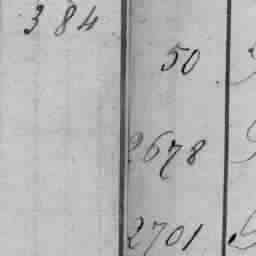 384
50
2678
2701